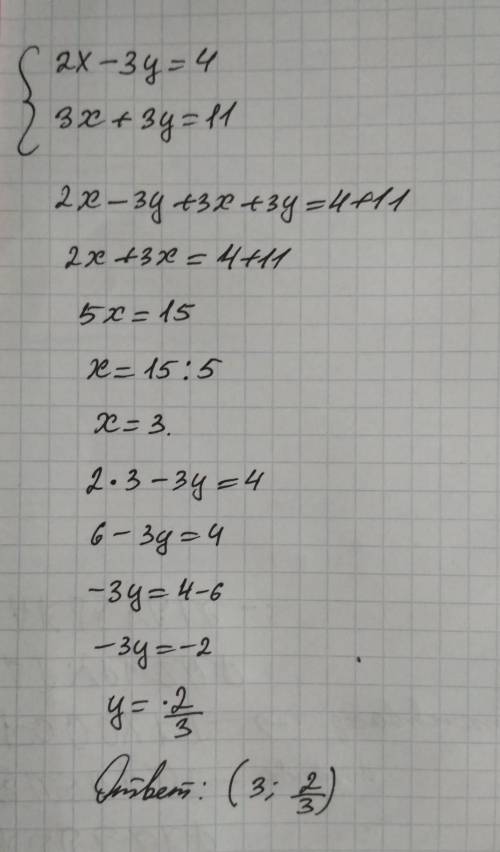 2x - 3y = 4
3x + 3y = 11
2x - 3y + 3x + 3y = 4 + 11
2x + 3x = 4 + 11
5x = 15
x = 15 : 5
x = 3.
2 · 3 - 3y = 4
6 - 3y = 4
-3y = 4 - 6
-3y = -2
y = 2/3
Ответ: (3; 2/3)